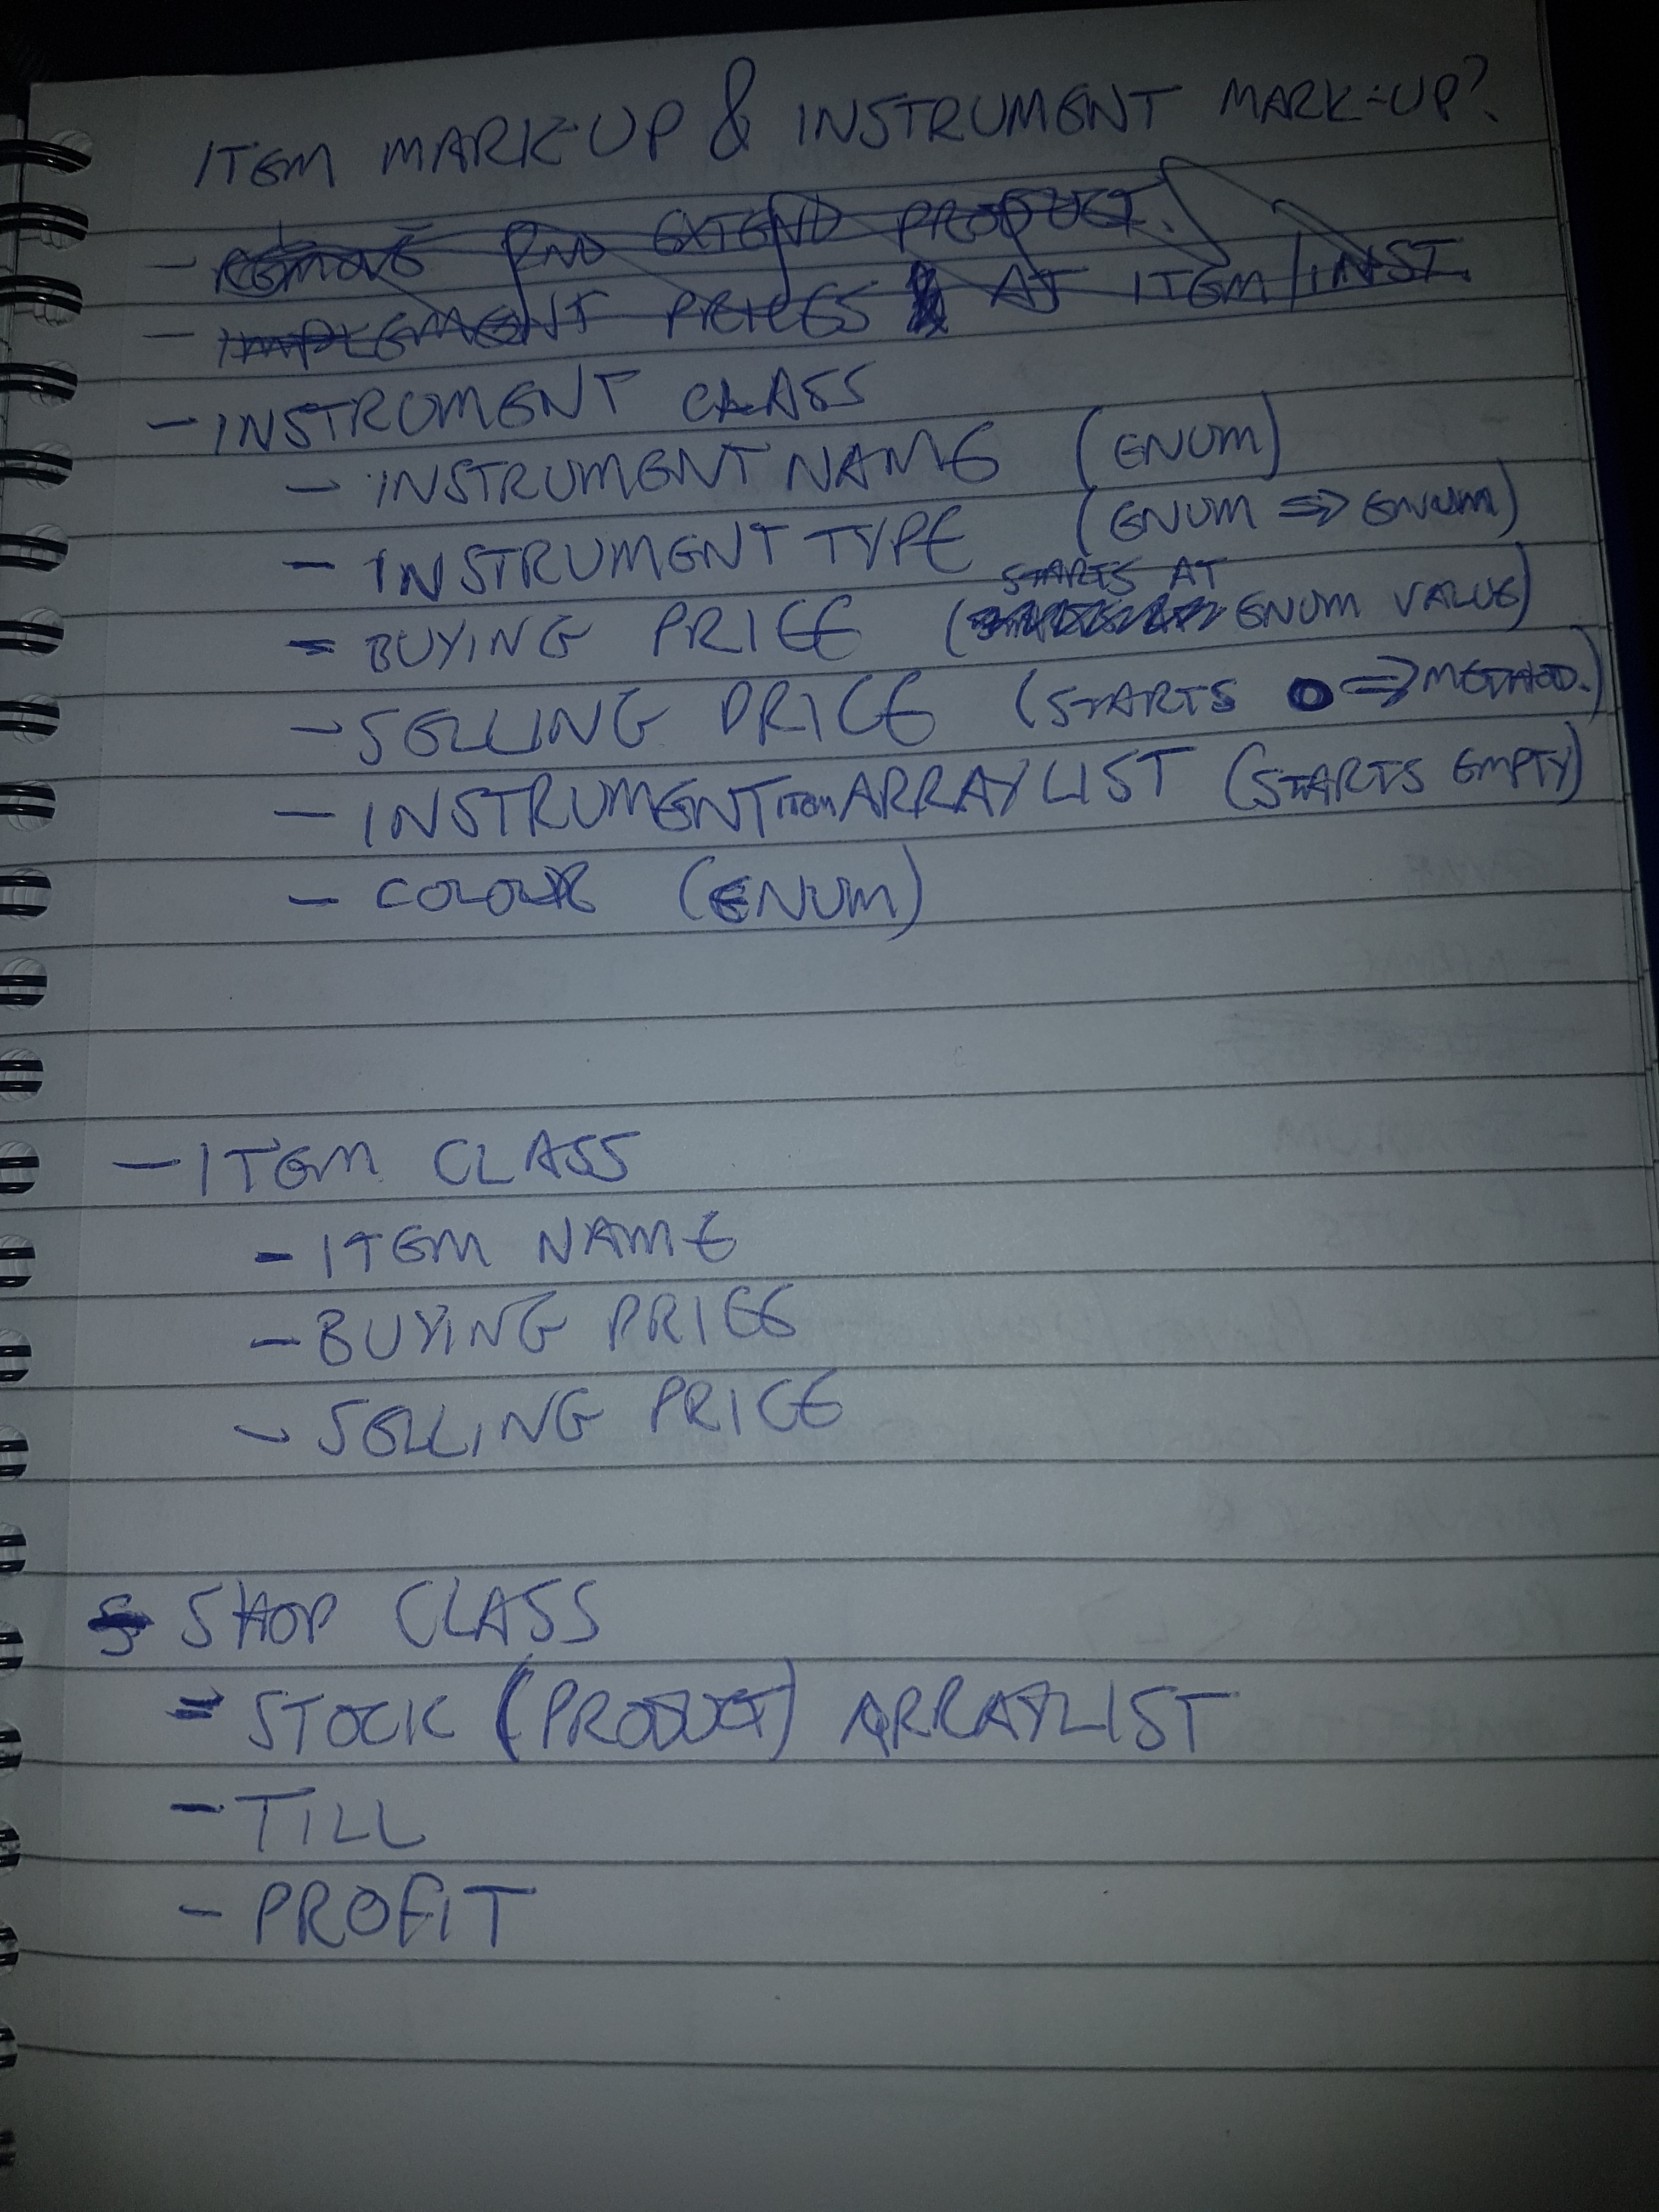 ITEM MARK-UP & INSTRUMENT MARK-UP?
- REMOVE AND EXTEND PRODUCT.
- IMPLEMENT PRICES AT ITEM/INST.
- INSTRUMENT CLASS
- INSTRUMENT NAME (ENUM)
- INSTRUMENT TYPE (ENUM => ENUM)
- BUYING PRICE (STARTS AT ENUM VALUE)
- SELLING PRICE (STARTS 0 => METHOD.)
- INSTRUMENT ITEM ARRAYLIST (STARTS EMPTY)
- COLOUR (ENUM)
- ITEM CLASS
- ITEM NAME
- BUYING PRICE
- SELLING PRICE
SHOP CLASS
- STOCK (PRODUCT) ARRAYLIST
- TILL
- PROFIT